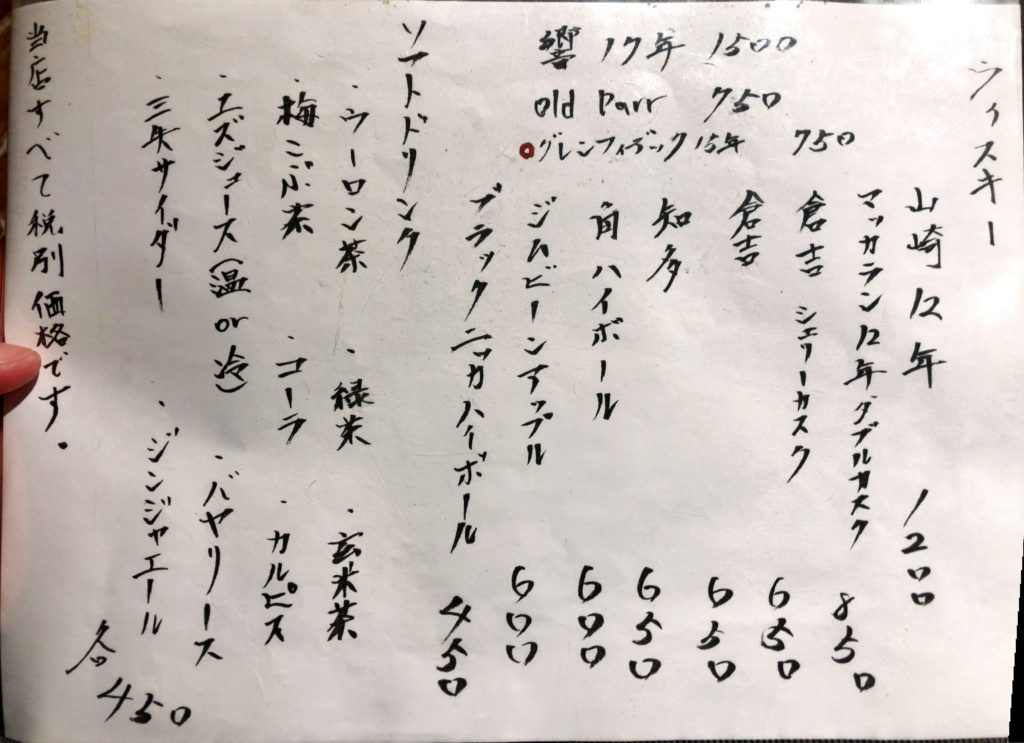 ウィスキー
響 17年 1500
old Parr 750
グレンフィデック 15年 750
山崎 12年 1200
マッカラン12年ダブルカスク 850
倉吉 シェリーカスク 650
倉吉 650
知多 650
角ハイボール 600
ジムビーンアップル 600
ブラックニッカハイボール 450
ソフトドリンク
・ウーロン茶 ・緑茶 ・玄米茶
・梅こぶ茶 ・コーラ ・カルピス
・エズジュース(温 or 冷) ・バヤリース
・三矢サイダー ・ジンジャエール
各450
当店すべて税別価格です。